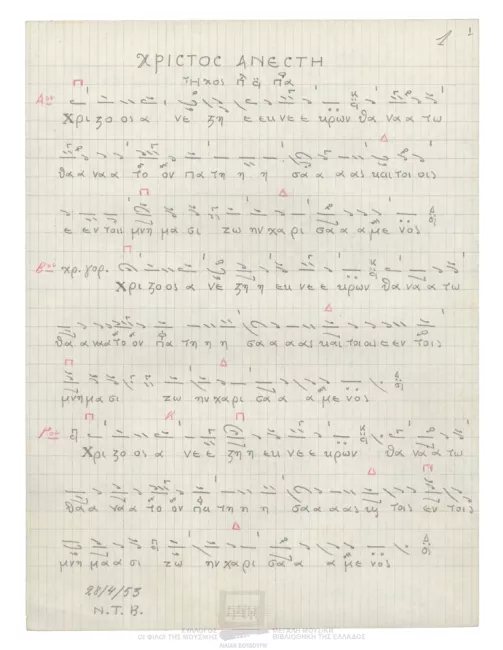 1 1
ΧΡΙΣΤΟΣ ΑΝΕΣΤΗ
Ἦχος
Α΄ον
Χρι ζο ος α νε ζη ε εκ νε ε κρων θα να α τω
θα α να α το ον πα τη η η σα α α ας και τοι οις
ε εν τοις μνη μα σι ζω ην χα ρι σα α α με νος
Β΄ον χρ. γορ.
Χρι ζο ος α νε ζη η εκ νε ε κρων θα να α τω
θα α να α το ον πα τη η η σα α α ας και τοι οις ε εν τοις
μνη μα σι ζω ην χα ρι σα α α με νος
Γ΄ον
Χρι ζο ος α νε ε ζη η εκ νε ε κρων θα να α τω
θα α να α το ον πα τη η η σα α α ας κ τοις εν τοις
μνη μα α σι ζω ην χα ρι σα α α με νος
28/4/53
Ν.Τ.Β.
ΣΥΛΛΟΓΟΣ
ΟΙ ΦΙΛΟΙ ΤΗΣ ΜΟΥΣΙΚΗΣ
ΜΕΓΑΛΗ ΜΟΥΣΙΚΗ
ΒΙΒΛΙΟΘΗΚΗ ΤΗΣ ΕΛΛΑΔΟΣ
ΛΙΛΙΑΝ ΒΟΥΔΟΥΡΗ